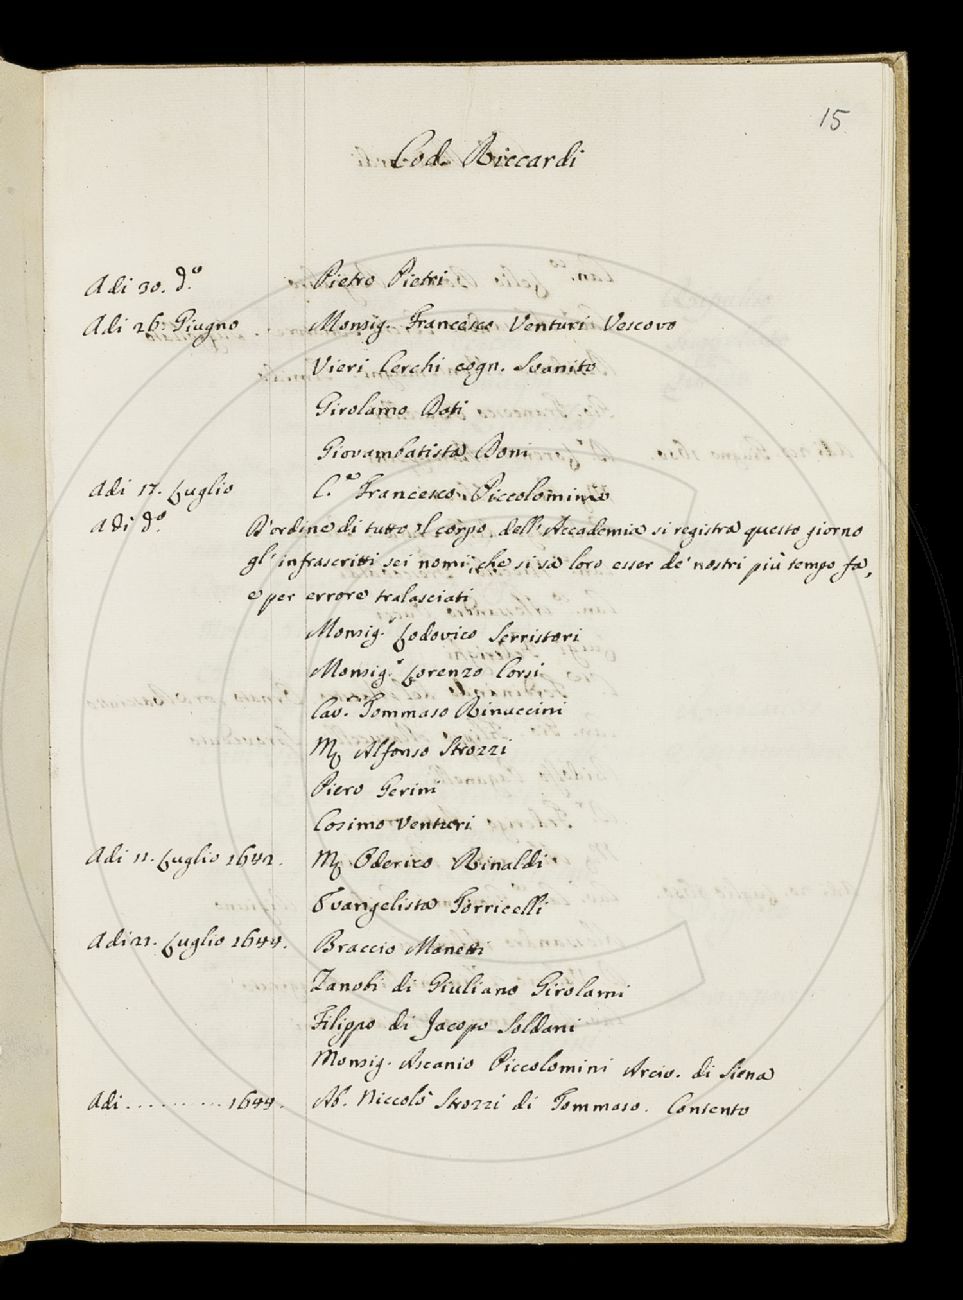 15
Cod. Riccardi
Adi 30. d.º Pietro Pietri
Adi 26. Giugno Monsig. Francesco Venturi Vescovo
Vieri Cerchi cogn. Svanito
Girolamo Dati
Giovambatista Doni
Adi 17. Luglio C.e Francesco Piccolomini
Adi dº. D'ordine di tutto il corpo dell'Accademia si registra questo giorno
gl'infrascritti sei nomi, che si sa loro esser de' nostri più tempo fa,
e per errore tralasciati
Monsig. Lodovico Serristori
Monsig.r Lorenzo Corsi
Cav.re Tommaso Rinuccini
Mʃ Alfonso Strozzi
Piero Gerini
Cosimo Venturi
Adi 11. Luglio 1642. Mʃ Oderico Rinaldi
Evangelista Torricelli
Adi 21. Luglio 1644. Braccio Manetti
Zanobi di Giuliano Girolami
Filippo di Jacopo Soldani
Monsig. Ascanio Piccolomini Arciv. di Siena
Adi .......... 1644. Ab. Niccolò Strozzi di Tommaso. Contento